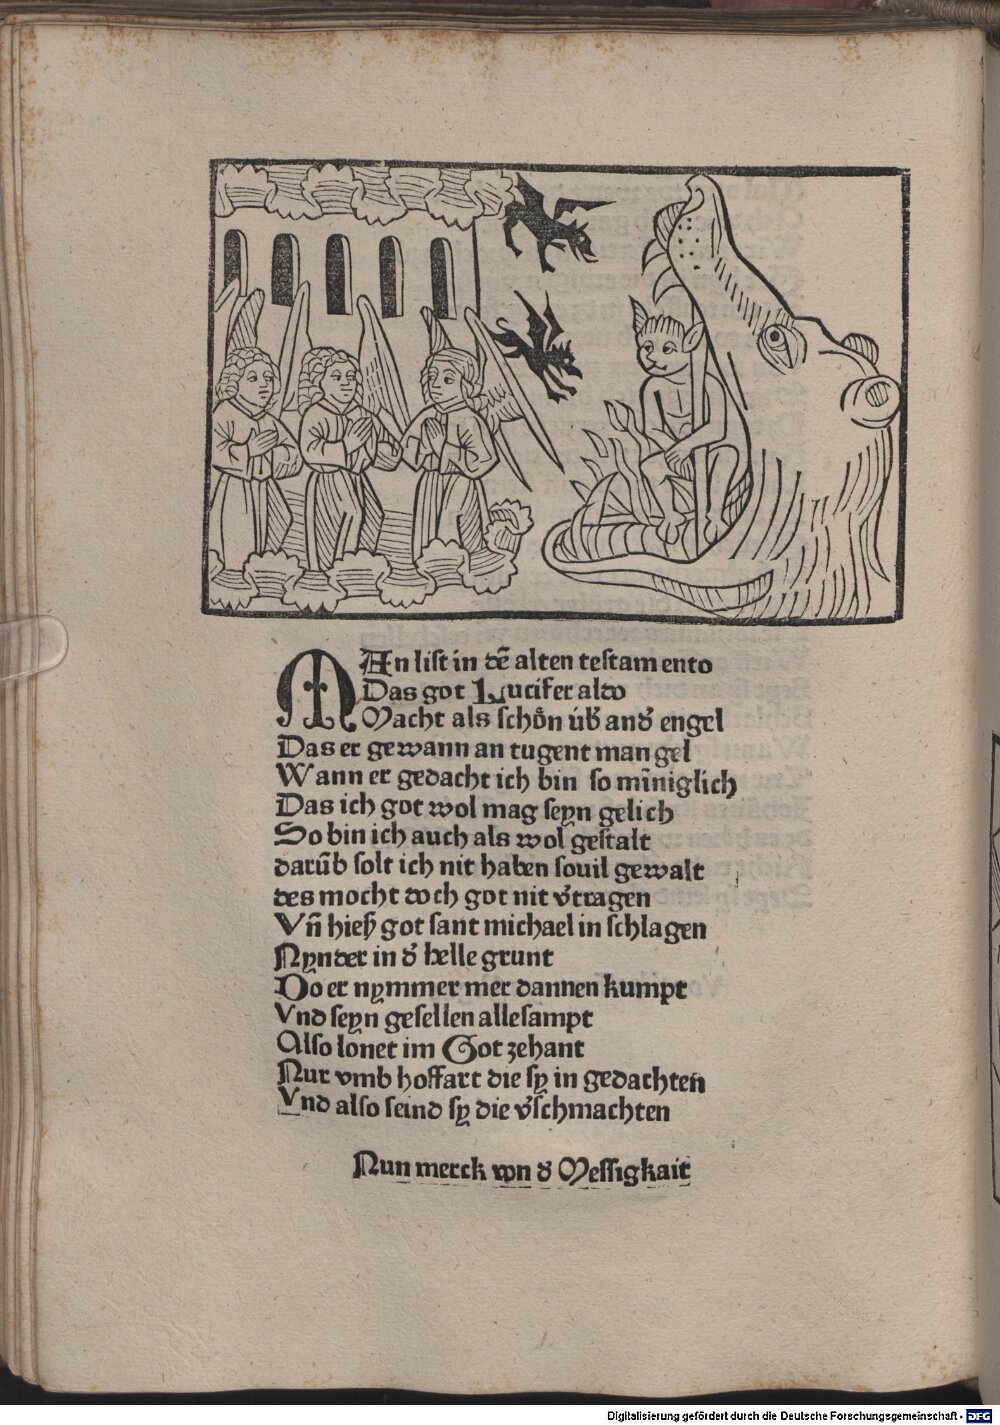 MAn list in dē alten testamento
Das got Lucifer aldo
Macht als schoͤn úb̉ and̉ engel
Das er gewann an tugent mangel
Wann er gedacht ich bin so miñiglich
Das ich got wol mag seyn gelich
So bin ich auch als wol gestalt
darūb solt ich nit haben souil gewalt
des mocht doch got nit v̉tragen
Vñ hieß got sant michael in schlagen
Nynder in d̉ helle grunt
Do er nymmer mer dannen kumpt
Vnd seyn gesellen allesampt
Also lonet im Got zehant
Nur vmb hoffart die sy in gedachten
Vnd also seind sy die v̉schmachten
Nun merck von d̉ Messigkait
Digitalisierung gefördert durch die Deutsche Forschungsgemeinschaft - DFG